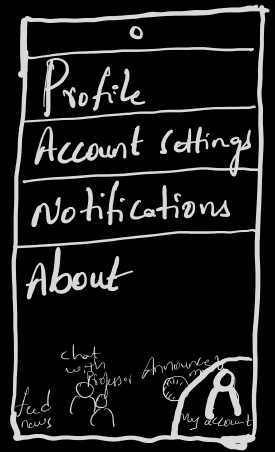 Profile
Account settings
Notifications
About
chat
with
Professor
Announce
news
My account